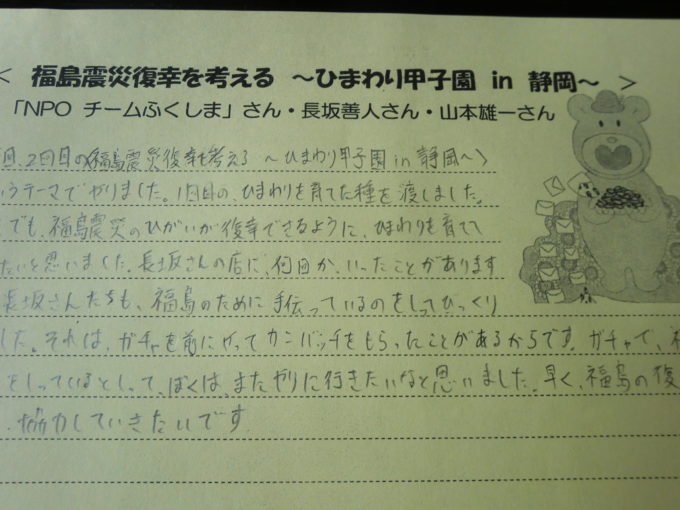 < 福島震災復幸を考える ～ひまわり甲子園 in 静岡～ >
「NPO チームふくしま」さん・長坂善人さん・山本雄一さん
回、2回目の〈福島震災復幸を考える ～ひまわり甲子園in静岡～〉
うテーマでやりました。1回目の、ひまわりを育てた種を渡しました。
でも、福島震災のひがいが復幸できるように、ひまわりを育てて
たいと思いました。長坂さんの店に、何回か、いったことがあります
長坂さんたちも、福島のために手伝っているのをしってびっくり
した。それは、ガチャを前にやってカンバッチをもらったことがあるからです。ガチャで、
をしっているとして、ぼくは、またやりに行きたいなと思いました。早く、福島の復
協力していきたいです